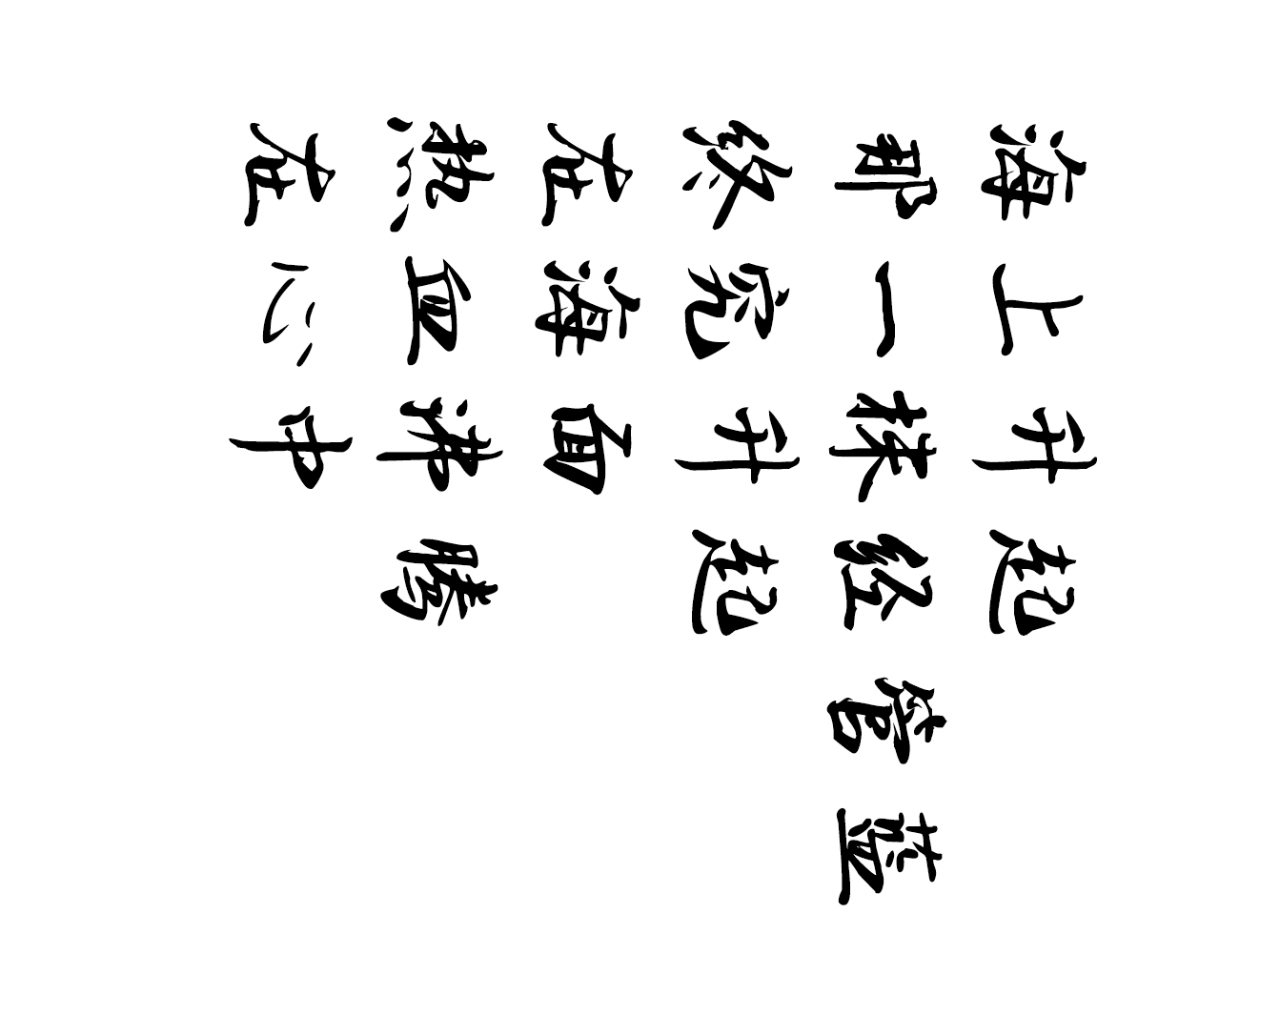 海上升起
那一抹经管蓝
终究升起
在海面
热血沸腾
在心中